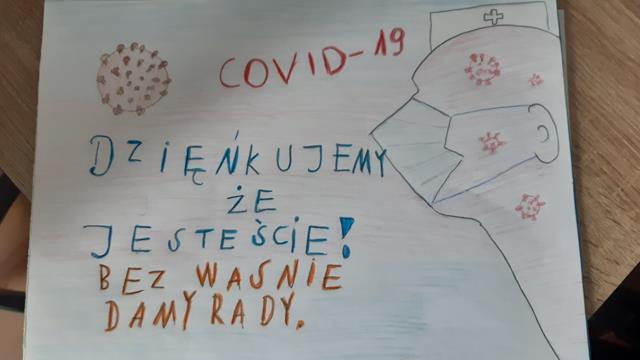 COVID-19
DZIĘŃKUJEMY
ŻE
JESTEŚCIE!
BEZ WASNIE
DAMY RADY.